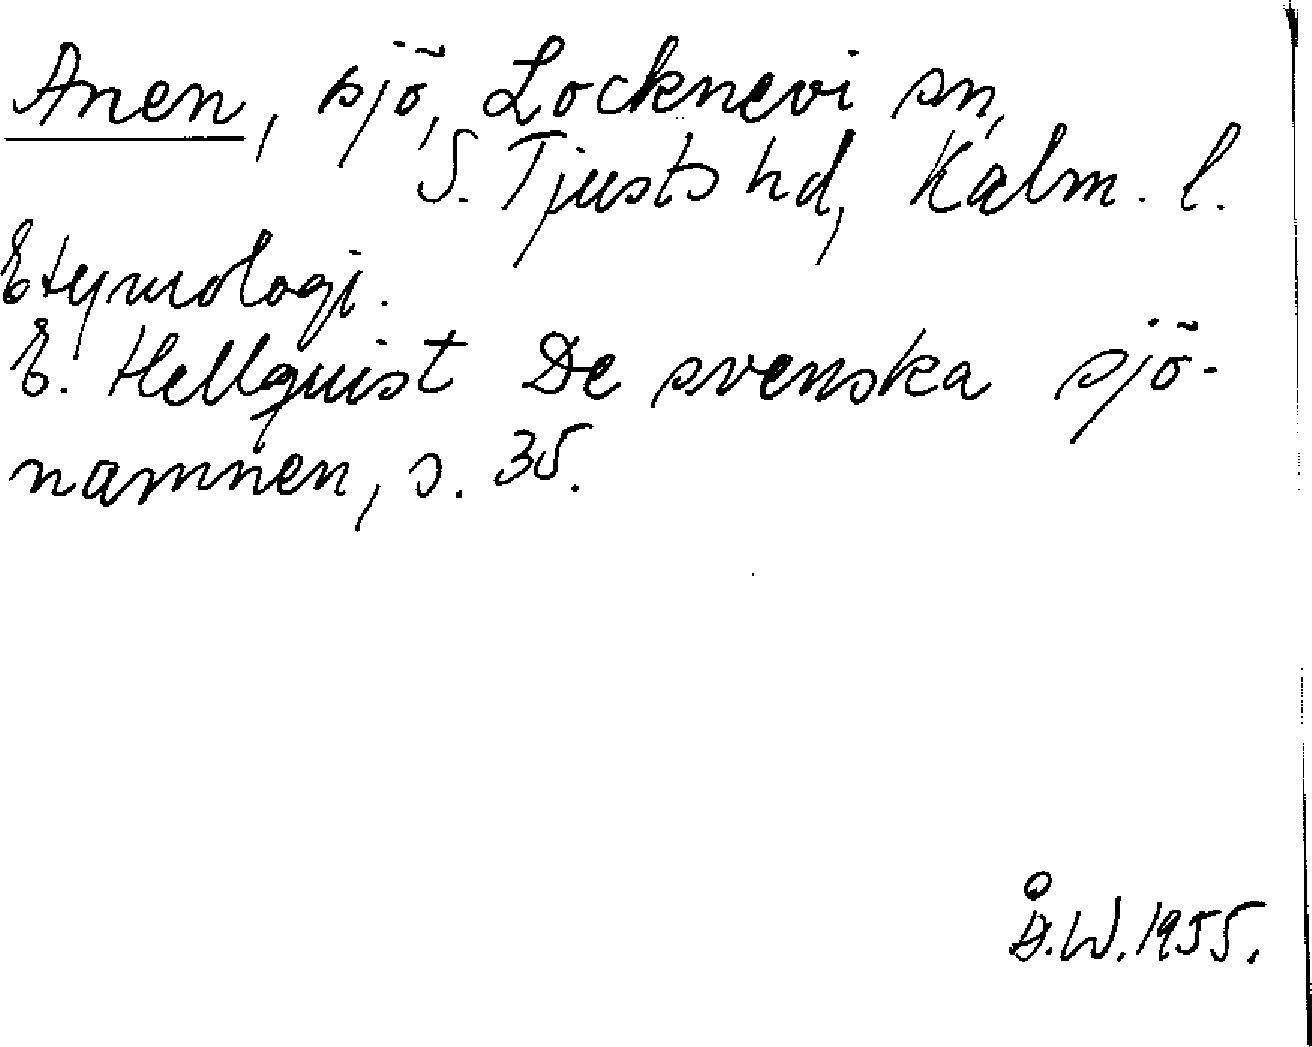 Anen, sjö, Locknevi sn,
S. Tjusts hd, Kalm. l.
Etymologi.
E. Hellquist De svenska sjö-
namnen, s. 35.
Å.W. 1955.